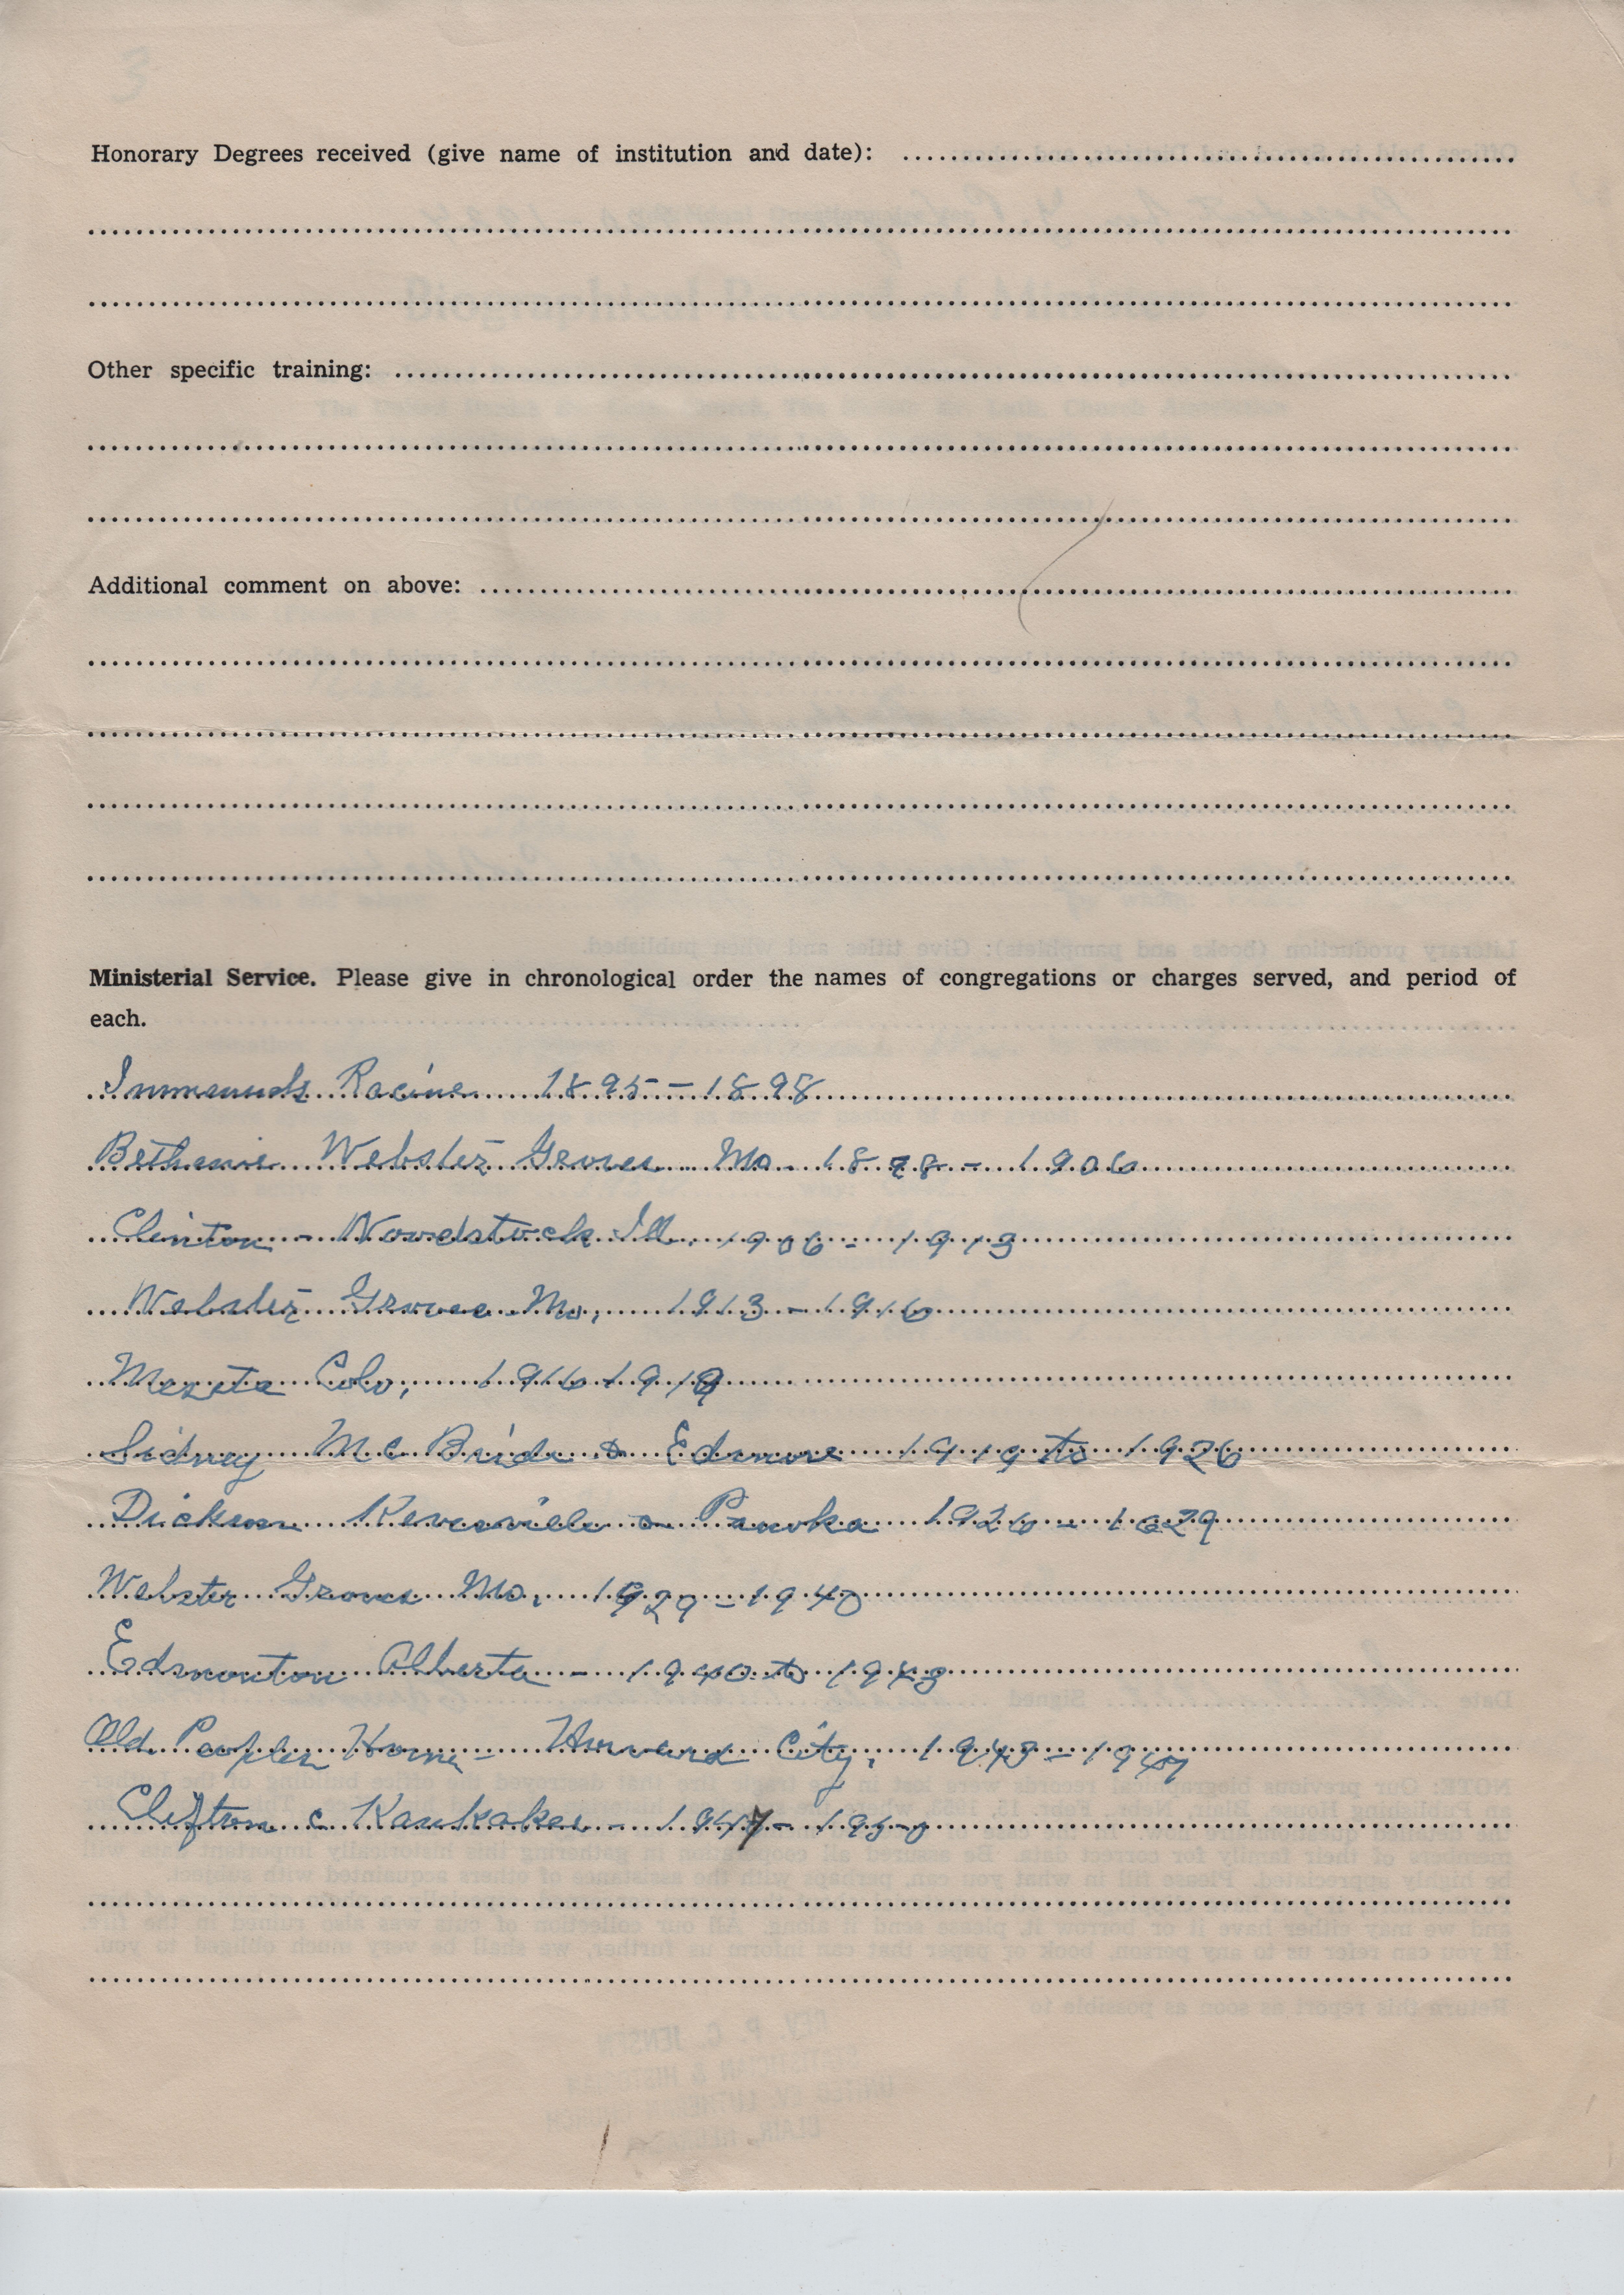 Honorary Degrees received (give name of institution and date):
Other specific training:
Additional comment on above:
Ministerial Service. Please give in chronological order the names of congregations or charges served, and period of
each.
Immanuels Racine 1895-1898
Bethanie Webster Groves Mo. 1898-1906
Clinton - Woodstock Ill. 1906-1913
Webster Groves Mo, 1913-1916
Colo, 1916-1919
Sidney McBride & Edmore 1919 to 1926
Dickson & Ponoka 1926-1929
Webster Groves Mo, 1929-1940
Edmonton Alberta - 1940 to 1943
Old Peoples Home - Howard City, 1943-1947
Clifton & Kankakee - 1947-1950